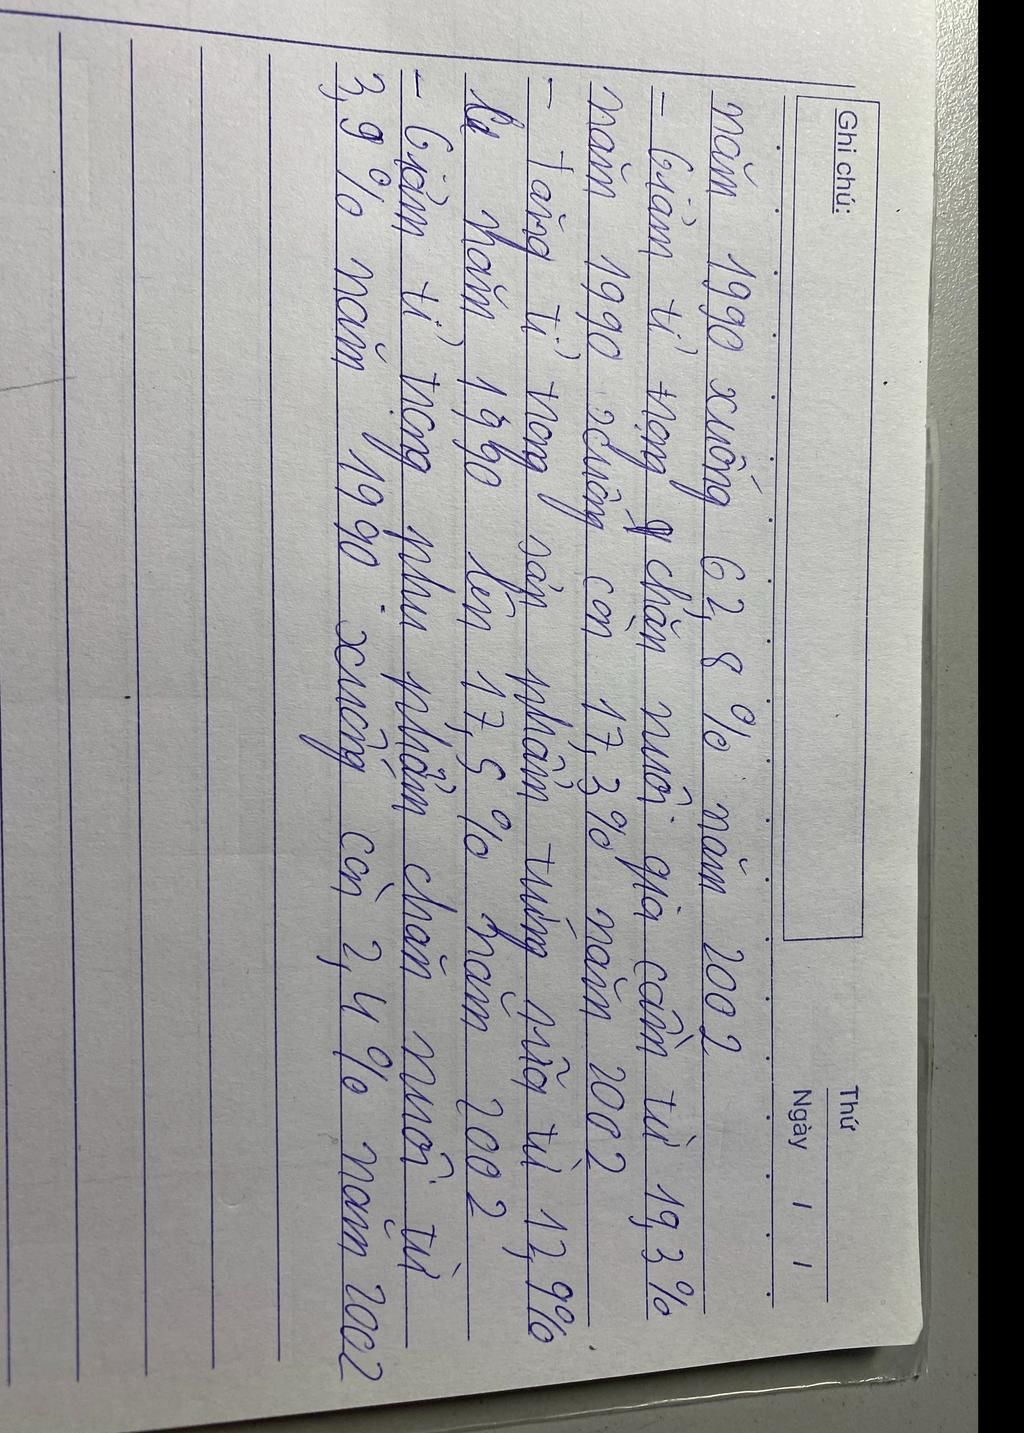 Ghi chú:
Thứ
Ngày / /
năm 1990 xuống 62,8% năm 2002
- Giảm tỉ trọng chăn nuôi gia cầm từ 19,3%
năm 1990 xuống còn 17,3% năm 2002
- Tăng tỉ trọng sản phẩm trứng sữa từ 12,9%
năm 1990 lên 17,5% năm 2002
- Giảm tỉ trọng phụ phẩm chăn nuôi từ
3,9% năm 1990 xuống còn 2,4% năm 2002